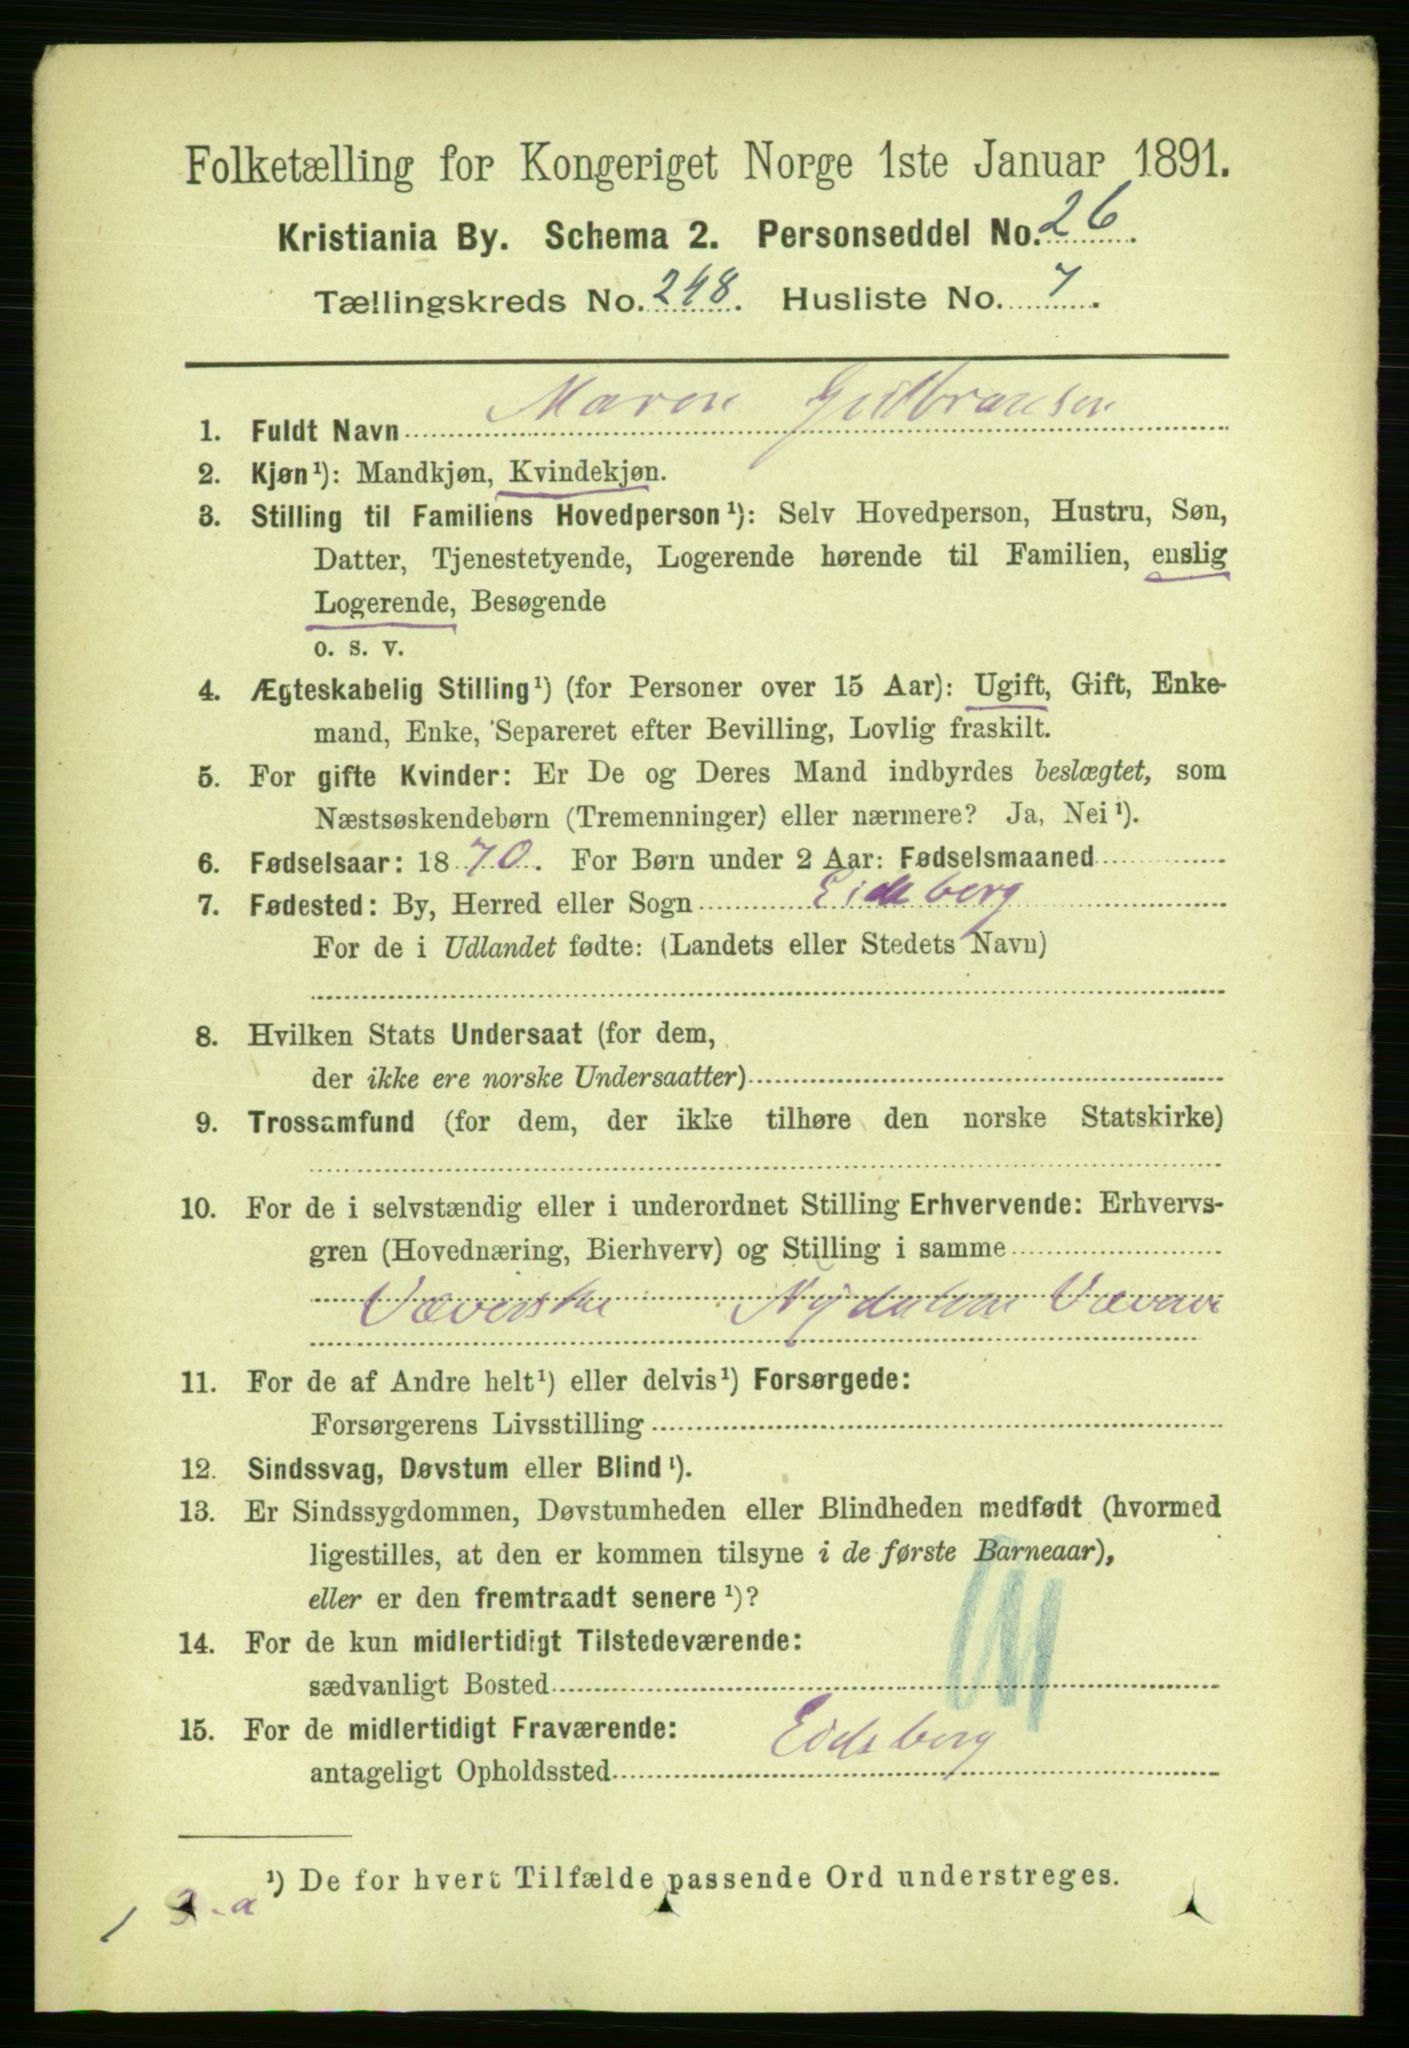 Folketælling for Kongeriget Norge 1ste Januar 1891.
Kristiania By. Schema 2. Personseddel No. 26.
Tællingskreds No. 248. Husliste No. 7.
1. Fuldt Navn Maren Gulbransen
2. Kjøn¹): Mandkjøn, Kvindekjøn.
3. Stilling til Familiens Hovedperson¹): Selv Hovedperson, Hustru, Søn,
Datter, Tjenestetyende, Logerende hørende til Familien, enslig
Logerende, Besøgende
o. s. v.
4. Ægteskabelig Stilling¹) (for Personer over 15 Aar): Ugift, Gift, Enke-
mand, Enke, Separeret efter Bevilling, Lovlig fraskilt.
5. For gifte Kvinder: Er De og Deres Mand indbyrdes beslægtet, som
Næstsøskendebørn (Tremenninger) eller nærmere? Ja, Nei¹).
6. Fødselsaar: 1870. For Børn under 2 Aar: Fødselsmaaned
7. Fødested: By, Herred eller Sogn Eidsberg
For de i Udlandet fødte: (Landets eller Stedets Navn)
8. Hvilken Stats Undersaat (for dem,
der ikke ere norske Undersaatter)
9. Trossamfund (for dem, der ikke tilhøre den norske Statskirke)
10. For de i selvstændig eller i underordnet Stilling Erhvervende: Erhvervs-
gren (Hovednæring, Bierhverv) og Stilling i samme
Væverske Nydalens Væveri
11. For de af Andre helt¹) eller delvis¹) Forsørgede:
Forsørgerens Livsstilling
12. Sindssvag, Døvstum eller Blind¹).
13. Er Sindssygdommen, Døvstumheden eller Blindheden medfødt (hvormed
ligestilles, at den er kommen tilsyne i de første Barneaar),
eller er den fremtraadt senere¹)?
14. For de kun midlertidigt Tilstedeværende:
sædvanligt Bosted
15. For de midlertidigt Fraværende:
antageligt Opholdssted Eidsberg
¹) De for hvert Tilfælde passende Ord understreges.
1 3.a